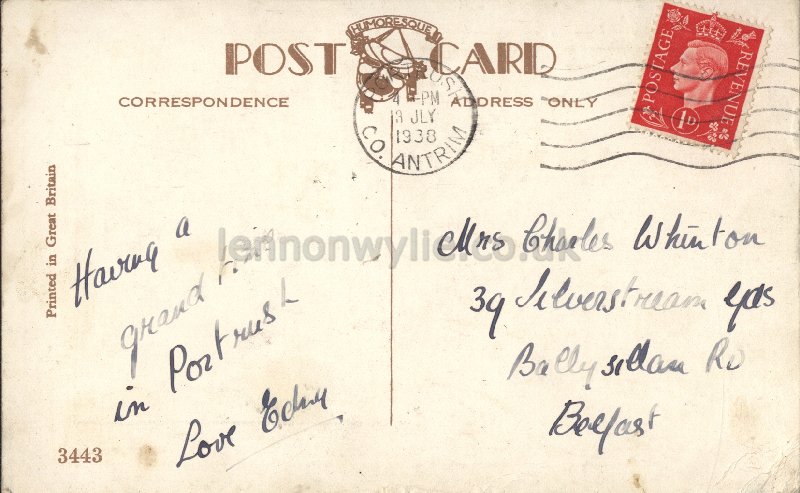 HUMORESQUE
POST CARD
CORRESPONDENCE
ADDRESS ONLY
4 - PM
JLY
1938
CO. ANTRIM
POSTAGE
REVENUE
1D
Printed in Great Britain
lennonwylie.co.uk
Having a
grand
in Portrush
Love Edny
Mrs Charles Whinton
39 Silverstream Gds
Ballysillan Rd
Belfast
3443